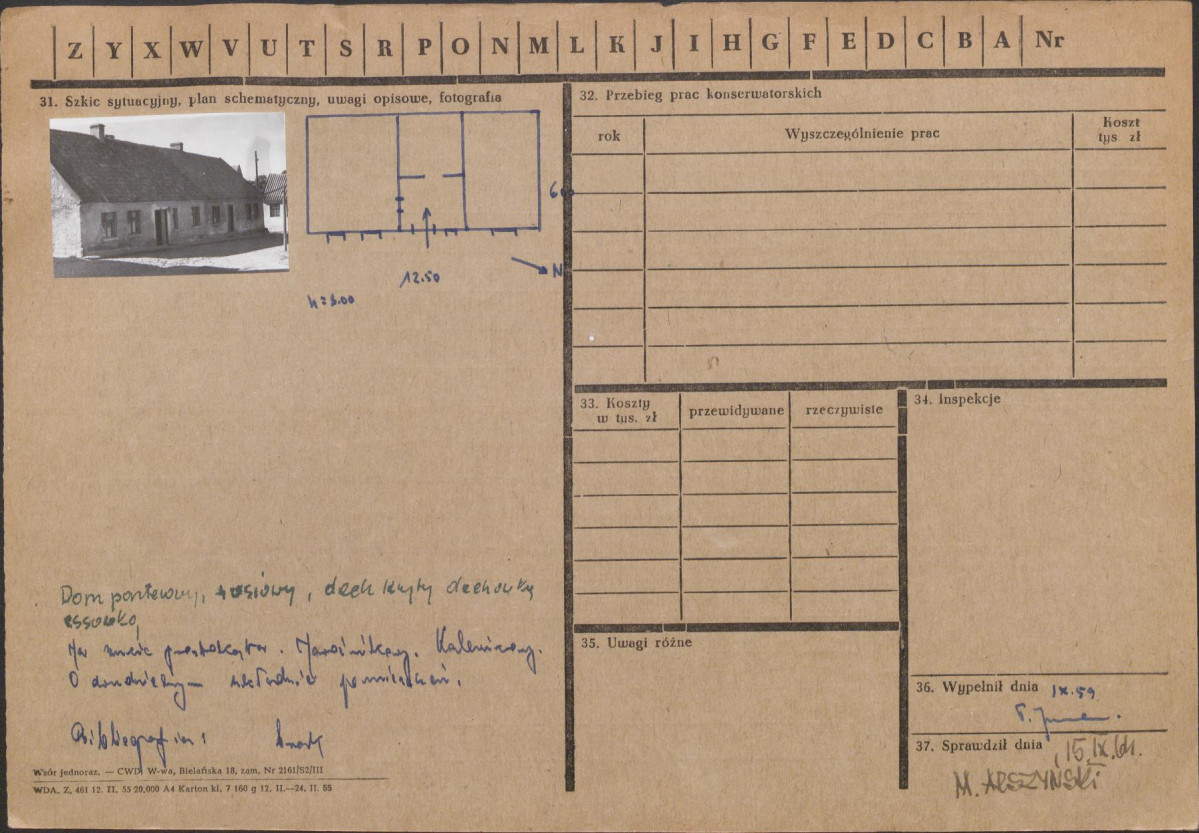 Z Y X W V U T S R P O N M L K J I H G F E D C B A Nr
31. Szkic sytuacyjny, plan schematyczny, uwagi opisowe, fotografia
6
12.50
N
h=3.00
Dom parterowy, dach kryty dachówką
essówką
Na
O pomieszczeń.
Bibliografia: brak
Wzór jednoraz. — CWD, W-wa, Bielańska 18, zam. Nr 2161/S2/III
WDA. Z. 461 12. II. 55 20,000 A4 Karton kl. 7 160 g 12. II.—24. II. 55
32. Przebieg prac konserwatorskich
rok Wyszczególnienie prac Koszt
tys zł
33. Koszty
w tys. zł przewidywane rzeczywiste
34. Inspekcje
35. Uwagi różne
36. Wypełnił dnia IX.59
37. Sprawdził dnia 15.IX.61.
M. ARSZYŃSKI